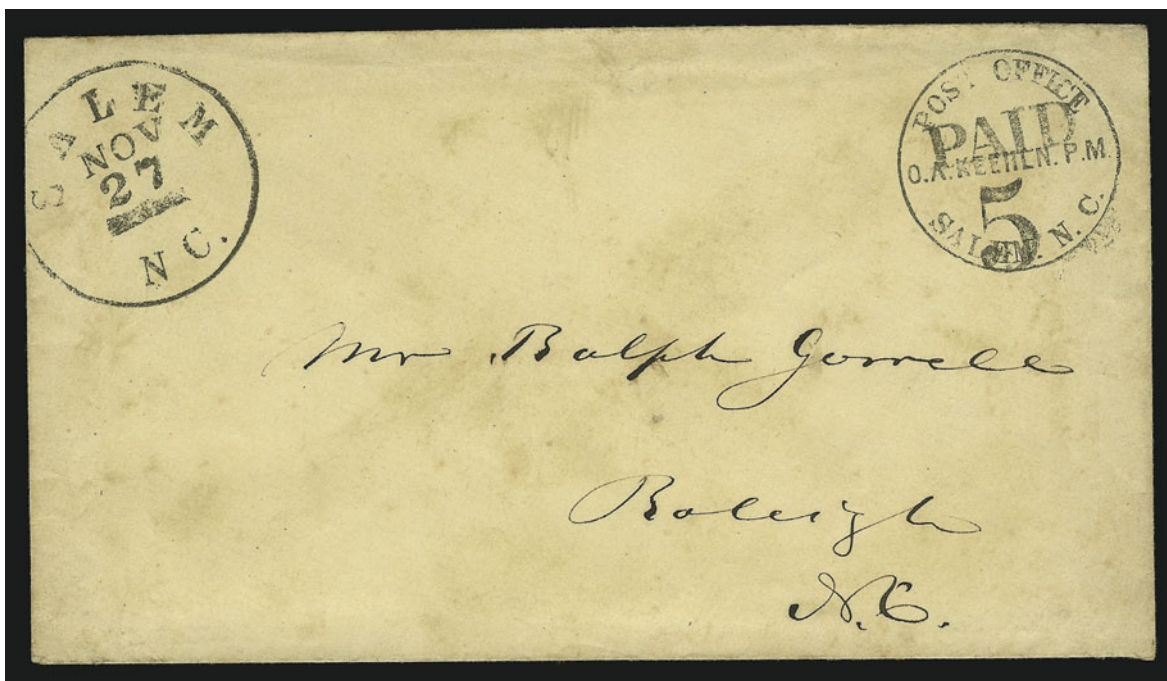 SALEM
NOV
27
N C.
POST OFFICE
PAID
O.A.KEEHLN. P.M.
5
SALEM. N. C.
Mr Ralph Gorrell
Raleigh
N.C.